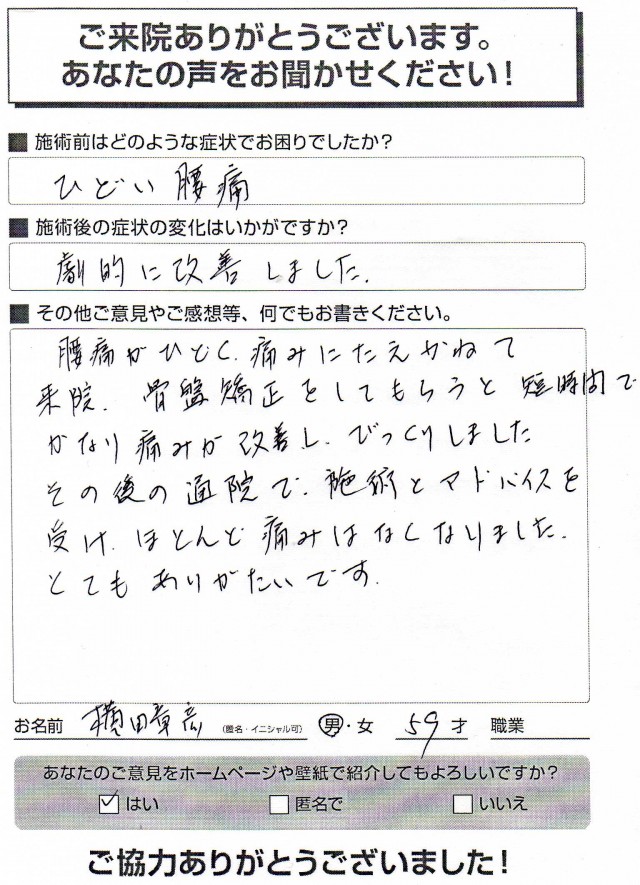 ご来院ありがとうございます。
あなたの声をお聞かせください！
■ 施術前はどのような症状でお困りでしたか？
ひどい腰痛
■ 施術後の症状の変化はいかがですか？
劇的に改善しました.
■ その他ご意見やご感想等、何でもお書きください。
腰痛がひどく、痛みにたえかねて
来院. 骨盤矯正をしてもらうと短時間で
かなり痛みが改善し、びっくりしました
その後の通院で、施術とアドバイスを
受け、ほとんど痛みはなくなりました.
とてもありがたいです.
お名前 横田章彦 (匿名・イニシャル可) 男・女 59才 職業
あなたのご意見をホームページや壁紙で紹介してもよろしいですか？
☑はい □匿名で □いいえ
ご協力ありがとうございました！